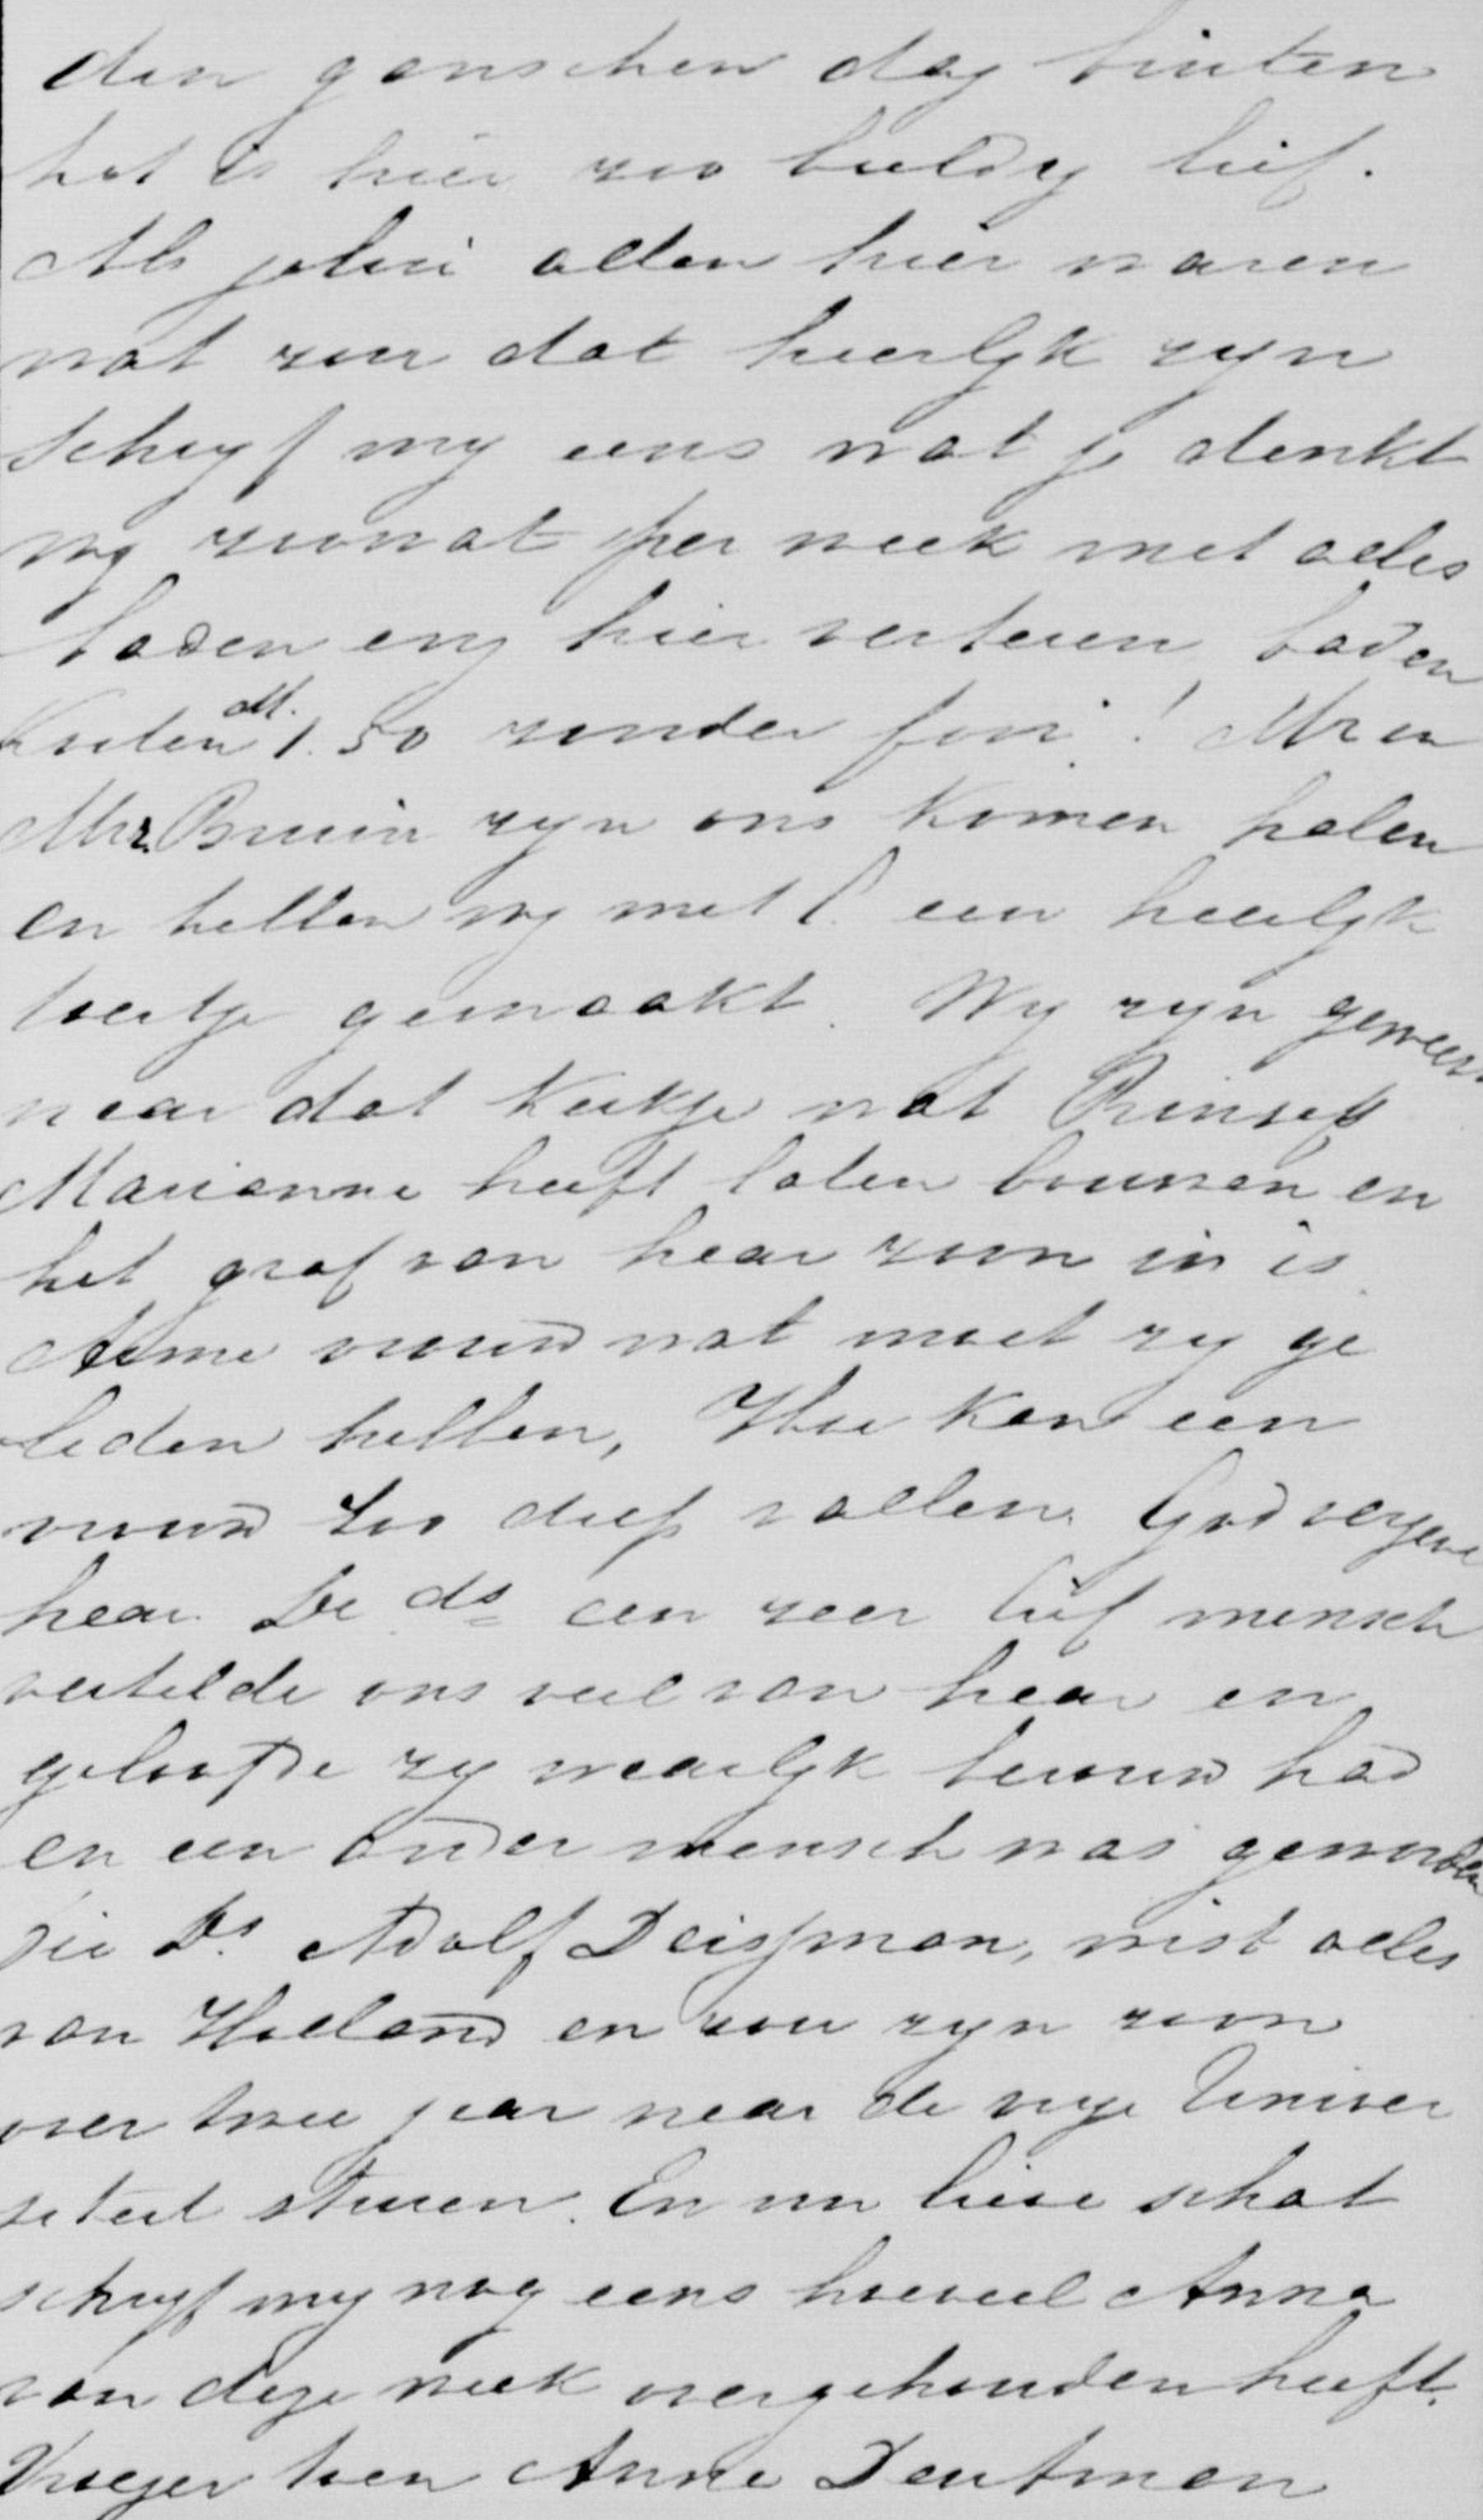 den ganschen dag buiten
het is hier zoo beeldig lief.
Als jelui allen hier waren
wat zou dat heerlyk zyn
Schryf my eens wat je denkt
wy zoowat per week met alles
baden enz hier verteren baden
Kosten M. 1.50 zonder fooi! Mr en
Mrs. Bruin zyn ons komen halen
en hebben wy met P. een heerlyk
toertje gemaakt. Wy zyn geweest
naar dat Kerkje wat Prinses
Marianne heeft laten bouwen en
het graf van haar zoon in is.
Arme vrouw wat moet zy ge
leden hebben, Hoe kan een
vrouw zoo diep vallen. God vergeve
haar. De ds een zeer lief mensch
vertelde ons veel van haar en
geloofde zy waarlyk berouw had
en een ander mensch was geworden
Die Ds. Adolf Deissman, wist alles
van Holland en zou zyn zoon
over twee jaar naar de vrye Univer
siteit sturen. En nu lieve schat
schryf my nog eens hoeveel Anna
van deze week overgehouden heeft.
Vroeger toen Anna Deutman